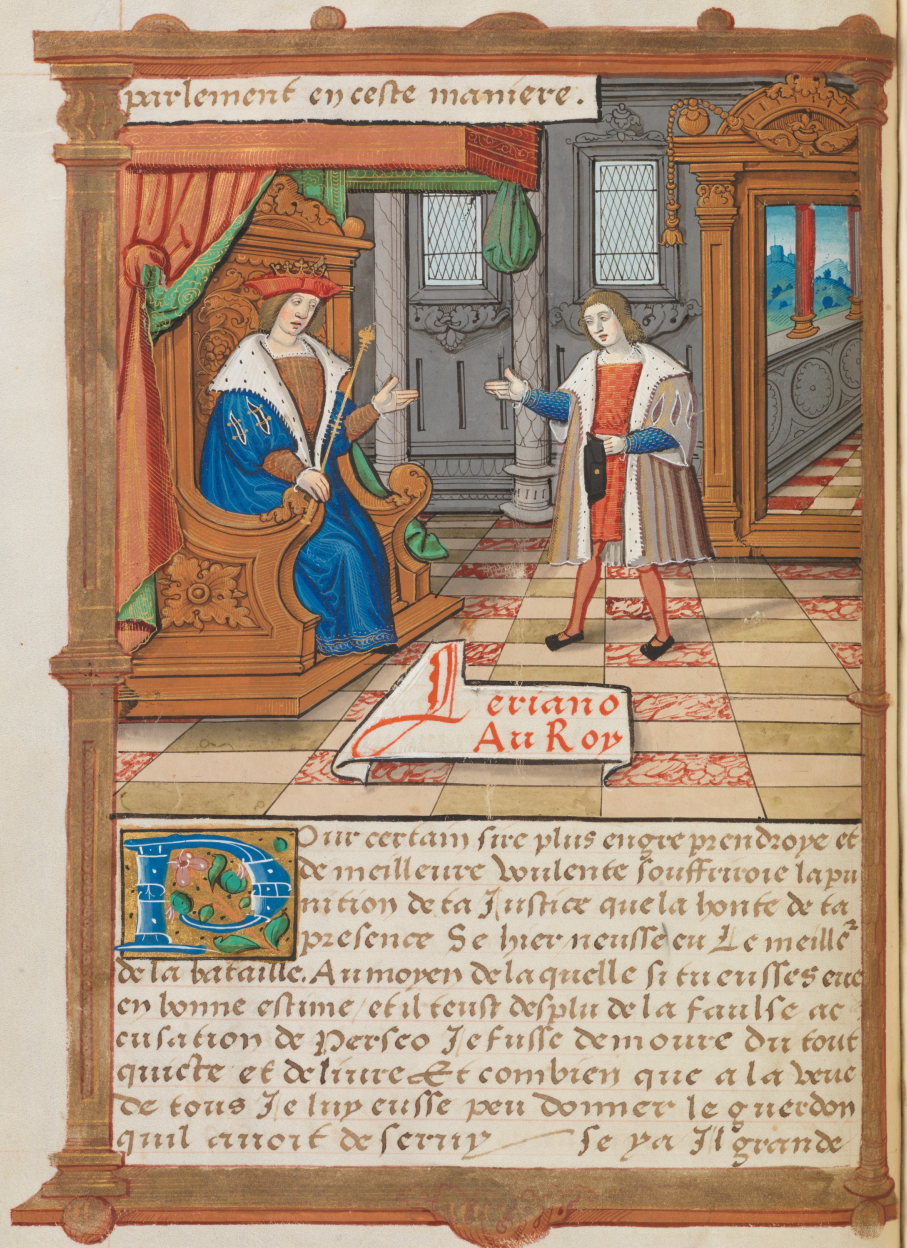 parlement en ceste maniere.
Leriano
Au Roy
Pour certain sire plus engre prendroye et
de meilleure voulente souffriroie la pu
nition de ta Justice que la honte de ta
presence Se hier neusse eu Le meille
de la bataille. Au moyen de laquelle si tu eusses eue
en bonne estime / et il teust desplu de la faulse ac
cusation de Perseo Je fusse demoure du tout
quicte et deliure Et combien que a la veue
de tous Je luy eusse peu donner le guerdon
quil auoit deseruy se ya Jl grande